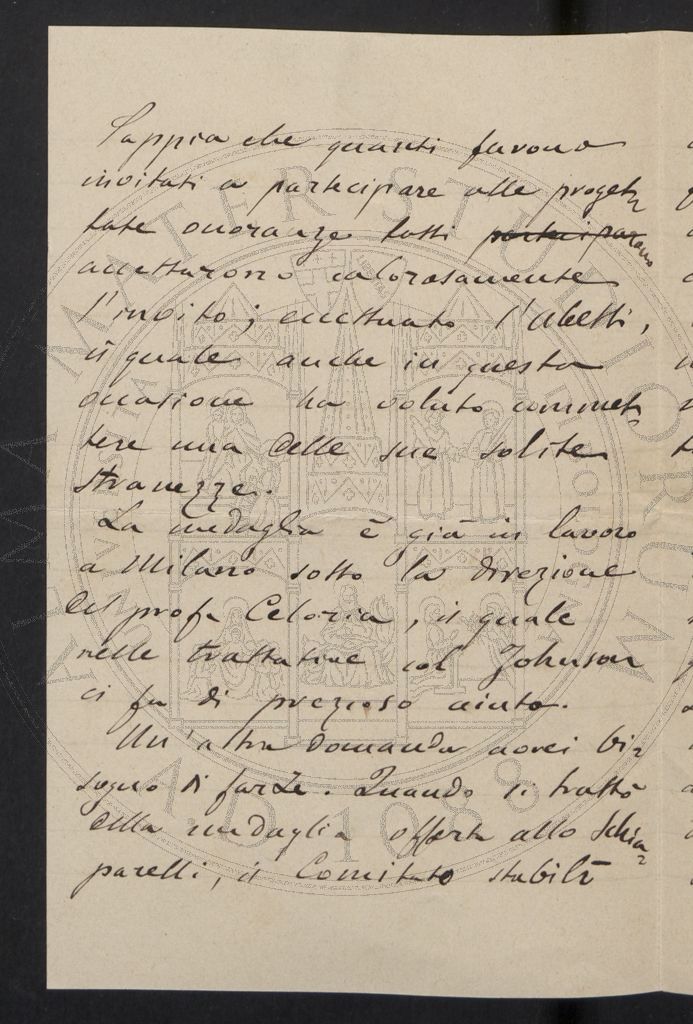 Sappia che quanti furono
invitati a partecipare alle proget-
tate onoranze tutti parteciparono
accettarono calorosamente
l'invito; eccettuato l'Abetti,
il quale anche in questa
occasione ha voluto commet-
tere una delle sue solite
stranezze.
La medaglia è già in lavoro
a Milano sotto la direzione
del profr Celoria, il quale
nelle trattative col Johnson
ci fu di prezioso aiuto.
Un'altra domanda avrei bi-
sogno di farLe. Quando si trattò
della medaglia offerta allo Schia-
parelli, il Comitato stabilì
ALMA MATER STUDIORUM
A.D. 1088